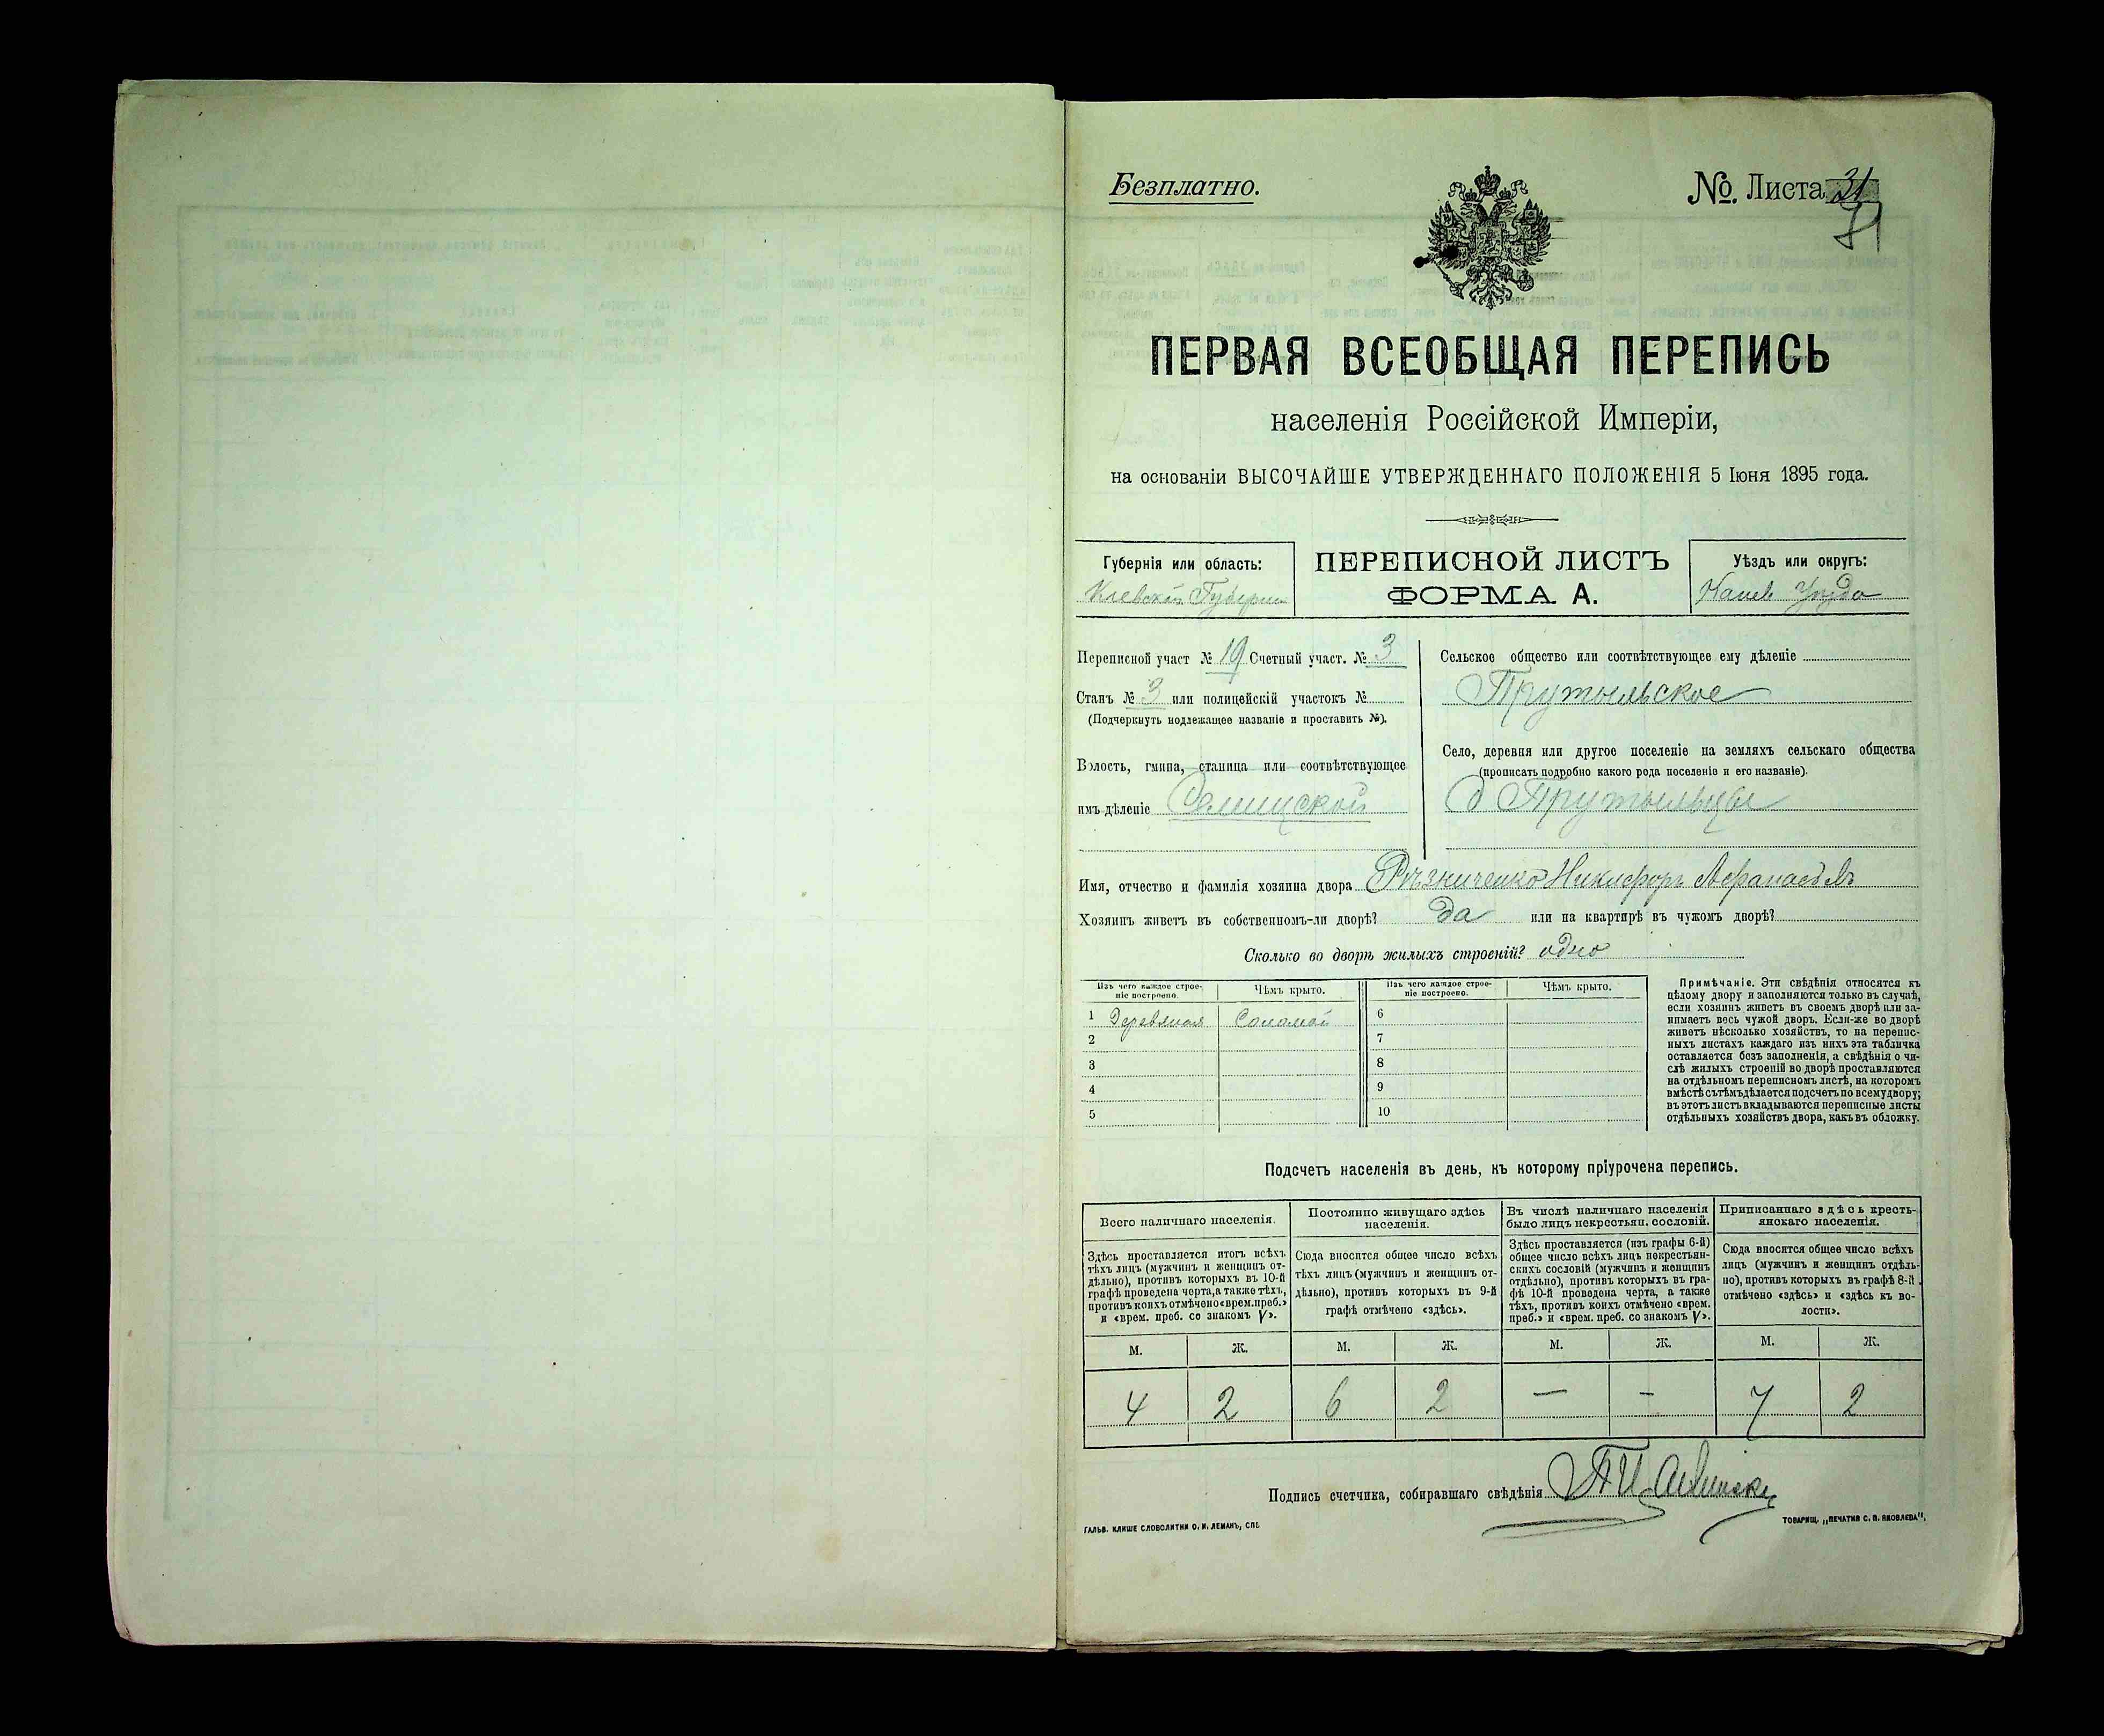 Безплатно.
№. Листа 31
71
ПЕРВАЯ ВСЕОБЩАЯ ПЕРЕПИСЬ
населенія Россійской Имперіи,
на основаніи ВЫСОЧАЙШЕ УТВЕРЖДЕННАГО ПОЛОЖЕНІЯ 5 Іюня 1895 года.
Губернія или область:
Киевской Губернии
ПЕРЕПИСНОЙ ЛИСТЪ
ФОРМА А.
Уѣздъ или округъ:
Канев Уѣзда
Переписной участ № 19 Счетный участ. № 3
Станъ № 3 или полицейскій участокъ №
(Подчеркнуть подлежащее названіе и проставить №).
Волость, гмина, станица или соотвѣтствующее
имъ дѣленіе Селищской
Сельское общество или соотвѣтствующее ему дѣленіе
Прутыльское
Село, деревня или другое поселеніе на земляхъ сельскаго общества
(прописать подробно какого рода поселеніе и его названіе).
д Прутыльцы
Имя, отчество и фамилія хозяина двора Рѣзниченко Никифоръ Афанасьевъ
Хозяинъ живетъ въ собственномъ-ли дворѣ? да или на квартирѣ въ чужомъ дворѣ?
Сколько во дворѣ жилыхъ строеній? одно
Изъ чего каждое строе-
ніе построено.
Чѣмъ крыто.
Изъ чего каждое строе-
ніе построено.
Чѣмъ крыто.
1 Деревяная Соломой 6
2 7
3 8
4 9
5 10
Примѣчаніе. Эти свѣдѣнія относятся къ
цѣлому двору и заполняются только въ случаѣ,
если хозяинъ живетъ въ своемъ дворѣ или за-
нимаетъ весь чужой дворъ. Если-же во дворѣ
живетъ нѣсколько хозяйствъ, то на перепис-
ныхъ листахъ каждаго изъ нихъ эта табличка
оставляется безъ заполненія, а свѣдѣнія о чи-
слѣ жилыхъ строеній во дворѣ проставляются
на отдѣльномъ переписномъ листѣ, на которомъ
вмѣстѣ съ тѣмъ дѣлается подсчетъ по всему двору;
въ этотъ листъ вкладываются переписные листы
отдѣльныхъ хозяйствъ двора, какъ въ обложку.
Подсчетъ населенія въ день, къ которому пріурочена перепись.
Всего наличнаго населенія.
Здѣсь проставляется итогъ всѣхъ
тѣхъ лицъ (мужчинъ и женщинъ от-
дѣльно), противъ которыхъ въ 10-й
графѣ проведена черта, а также тѣхъ,
противъ коихъ отмѣчено «врем. преб.»
и «врем. преб. со знакомъ V».
Постоянно живущаго здѣсь
населенія.
Сюда вносится общее число всѣхъ
тѣхъ лицъ (мужчинъ и женщинъ от-
дѣльно), противъ которыхъ въ 9-й
графѣ отмѣчено «здѣсь».
Въ числѣ наличнаго населенія
было лицъ некрестьян. сословій.
Здѣсь проставляется (изъ графы 6-й)
общее число всѣхъ лицъ некрестьян-
скихъ сословій (мужчинъ и женщинъ
отдѣльно), противъ которыхъ въ гра-
фѣ 10-й проведена черта, а также
тѣхъ, противъ коихъ отмѣчено «врем.
преб.» и «врем. преб. со знакомъ V».
Приписаннаго здѣсь кресть-
янскаго населенія.
Сюда вносится общее число всѣхъ
лицъ (мужчинъ и женщинъ отдѣль-
но), противъ которыхъ въ графѣ 8-й
отмѣчено «здѣсь» и «здѣсь къ во-
лости».
М. Ж. М. Ж. М. Ж. М. Ж.
4 2 6 2 — - 7 2
Подпись счетчика, собиравшаго свѣдѣнія
ГАЛЬВ. КЛИШЕ СЛОВОЛИТНИ О. И. ЛЕМАНЪ, СПБ.
ТОВАРИЩ. „ПЕЧАТНЯ С. П. ЯКОВЛЕВА".